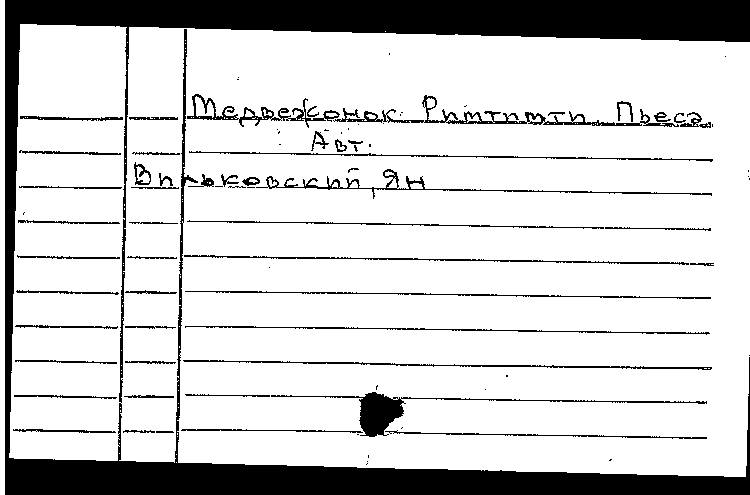 Медвежонок Римтимти. Пьеса
Авт.
Вильковский, Ян